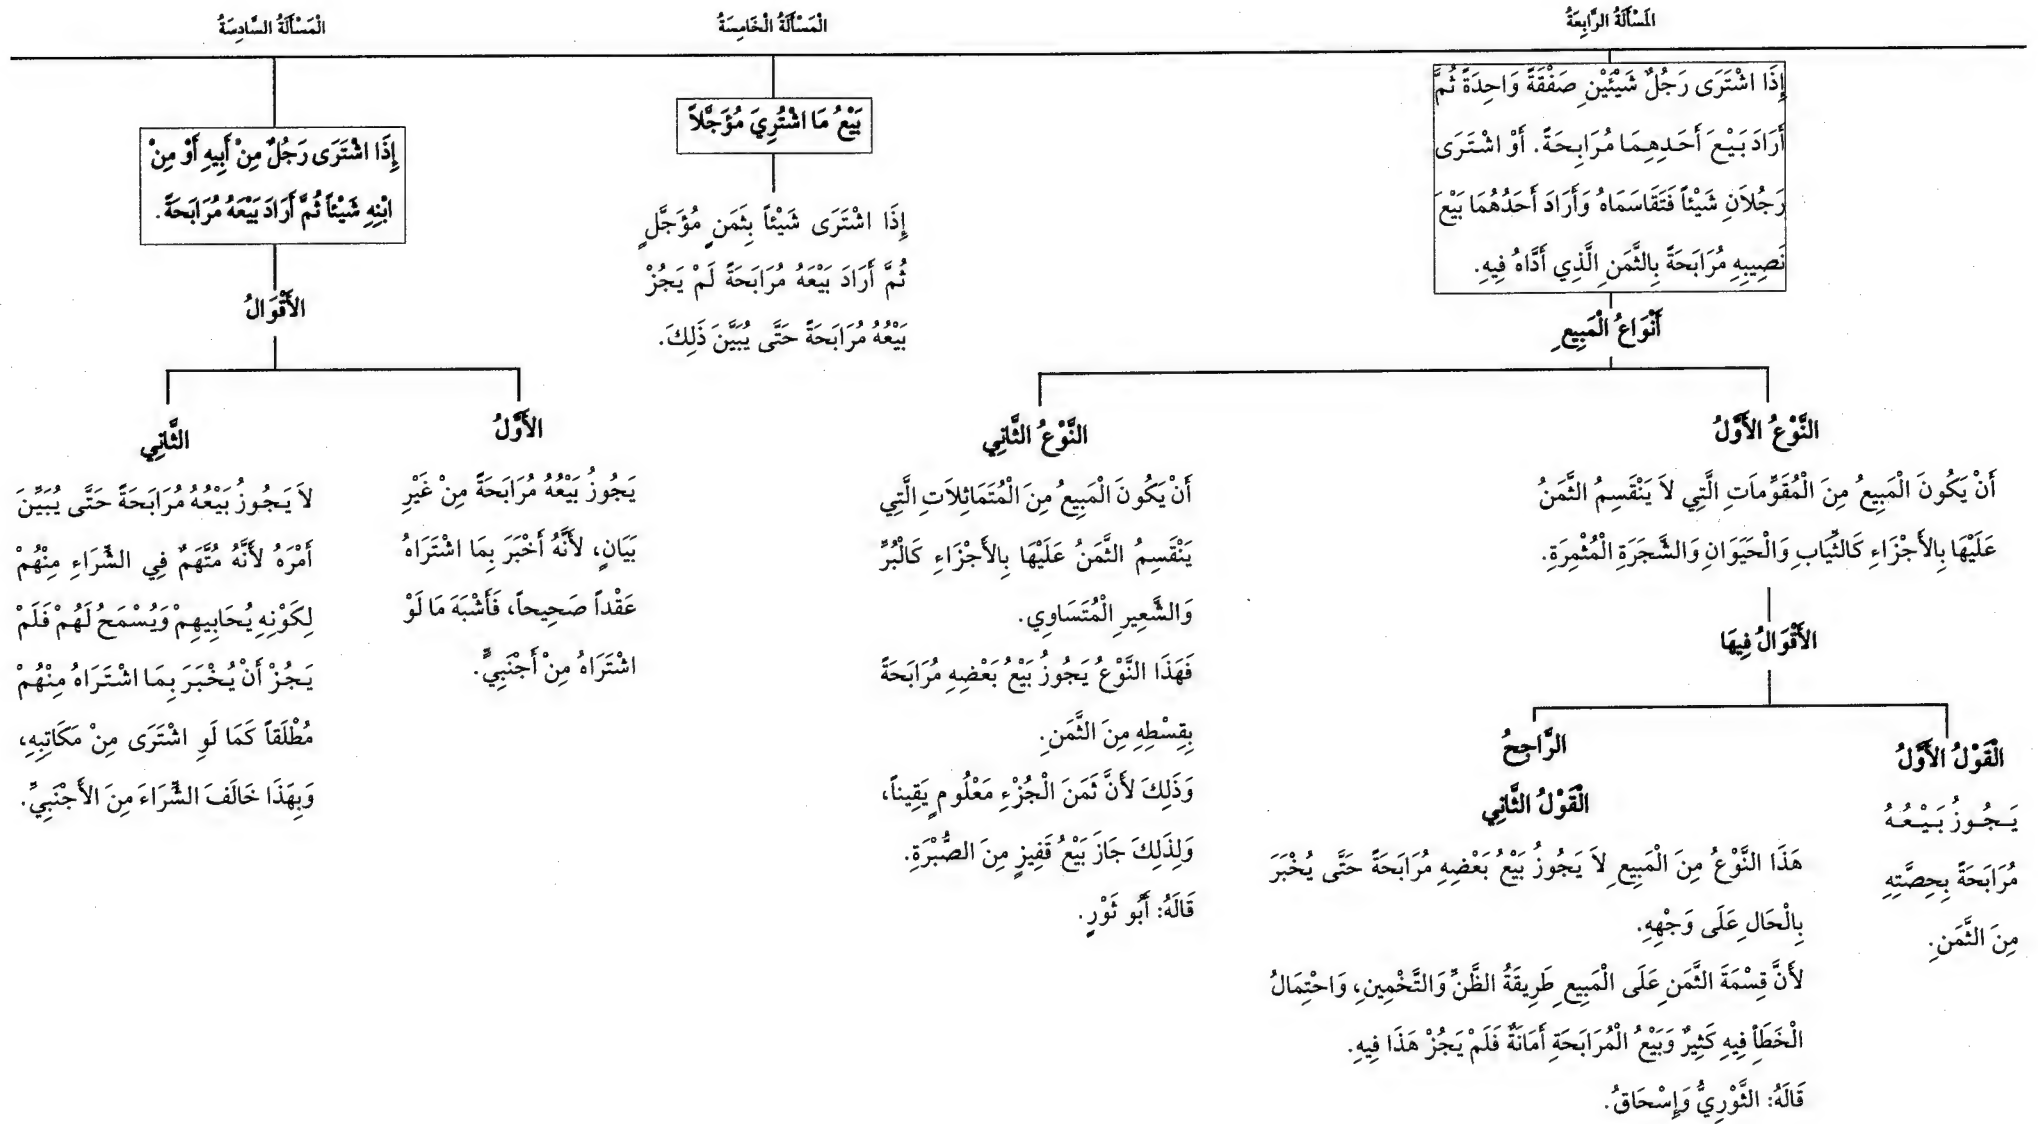 الْمَسْأَلَةُ الرَّابِعَةُ
إِذَا اشْتَرَى رَجُلٌ شَيْئَيْنِ صَفْقَةً وَاحِدَةً ثُمَّ
أَرَادَ بَيْعَ أَحَدِهِمَا مُرَابِحَةً. أَوْ اشْتَرَى
رَجُلاَنِ شَيْئاً فَتَقَاسَمَاهُ وَأَرَادَ أَحَدُهُمَا بَيْعَ
نَصِيبِهِ مُرَابَحَةً بِالثَّمَنِ الَّذِي أَدَّاهُ فِيهِ.
أَنْوَاعُ الْمَبِيعِ
النَّوْعُ الأَوَّلُ
أَنْ يَكُونَ الْمَبِيعُ مِنَ الْمُقَوَّمِاَتِ الَّتِي لاَ يَنْقَسِمُ الثَّمَنُ
عَلَيْهَا بِالأَجْزَاءِ كَالثِّيَابِ وَالْحَيَوَانِ وَالشَّجَرَةِ الْمُثْمِرَةِ.
الأَقْوَالُ فِيهَا
الْقَوْلُ الأَوَّلُ
يَجُوزُ بَيْعُهُ
مُرَابَحَةً بِحِصَّتِهِ
مِنَ الثَّمَنِ.
الرَّاجِحُ
الْقَوْلُ الثَّانِي
هَذَا النَّوْعُ مِنَ الْمَبِيعِ لاَ يَجُوزُ بَيْعُ بَعْضِهِ مُرَابَحَةً حَتَّى يُخْبَرَ
بِالْحَالِ عَلَى وَجْهِهِ.
لأَنَّ قِسْمَةَ الثَّمَنِ عَلَى الْمَبِيعِ طَرِيقَةُ الظَّنِّ وَالتَّخْمِينِ، وَاحْتِمَالُ
الْخَطَأِ فِيهِ كَثِيرٌ وَبَيْعُ الْمُرَابَحَةِ أَمَانَةٌ فَلَمْ يَجُزْ هَذَا فِيهِ.
قَالَهُ: الثَّوْرِيُّ وَإِسْحَاقُ.
النَّوْعُ الثَّانِي
أَنْ يَكُونَ الْمَبِيعُ مِنَ الْمُتَمَاثِلاَتِ الَّتِي
يَنْقَسِمُ الثَّمَنُ عَلَيْهَا بِالأَجْزَاءِ كَالْبُرِّ
وَالشَّعِيرِ الْمُتَسَاوِي.
فَهَذَا النَّوْعُ يَجُوزُ بَيْعُ بَعْضِهِ مُرَابَحَةً
بِقِسْطِهِ مِنَ الثَّمَنِ.
وَذَلِكَ لأَنَّ ثَمَنَ الْجُزْءِ مَعْلُومٍ يَقِيناً،
وَلِذَلِكَ جَازَ بَيْعُ قَفِيزٍ مِنَ الصُّبْرَةِ.
قَالَهُ: أَبُو ثَوْرٍ.
الْمَسْأَلَةُ الْخَامِسَةُ
بَيْعُ مَا اشْتُرِيَ مُؤَجَّلاً
إِذَا اشْتَرَى شَيْئاً بِثَمَنٍ مُؤَجَّلٍ
ثُمَّ أَرَادَ بَيْعَهُ مُرَابَحَةً لَمْ يَجُزْ
بَيْعُهُ مُرَابَحَةً حَتَّى يُبَيَّنَ ذَلِكَ.
الْمَسْأَلَةُ السَّادِسَةُ
إِذَا اشْتَرَى رَجُلٌ مِنْ أَبِيهِ أَوْ مِنْ
ابْنِهِ شَيْئاً ثُمَّ أَرَادَ بَيْعَهُ مُرَابَحَةً.
الأَقْوَالُ
الأَوَّلُ
يَجُوزُ بَيْعُهُ مُرَابَحَةً مِنْ غَيْرِ
بَيَانٍ، لأَنَّهُ أَخْبَرَ بِمَا اشْتَرَاهُ
عَقْداً صَحِيحاً، فَأَشْبَهَ مَا لَوْ
اشْتَرَاهُ مِنْ أَجْنَبِيٍّ.
الثَّانِي
لاَ يَجُوزُ بَيْعُهُ مُرَابَحَةً حَتَّى يُبَيِّنَ
أَمْرَهُ لأَنَّهُ مُتَّهَمٌ فِي الشِّرَاءِ مِنْهُمْ
لِكَوْنِهِ يُحَابِيهِمْ وَيُسْمَحُ لَهُمْ فَلَمْ
يَجُزْ أَنْ يُخْبَرَ بِمَا اشْتَرَاهُ مِنْهُمْ
مُطْلَقاً كَمَا لَوِ اشْتَرَى مِنْ مَكَاتِبِهِ،
وَبِهَذَا خَالَفَ الشِّرَاءَ مِنَ الأَجْنَبِيِّ.